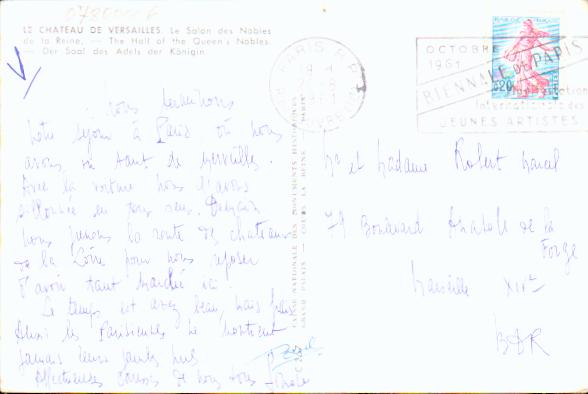 LE CHATEAU DE VERSAILLES. Le Salon des Nobles
de la Reine. — The Hall of the Queen's Nobles.
Der Saal des Adels der Königin.
OCTOBRE
1961
BIENNALE de PARIS
Internationale des
JEUNES ARTISTES
nous terminons
notre séjour à Paris où nous
avons vu tant de merveilles.
Avec la voiture nous l'avons
sillonnée en tous sens. Demain
nous prenons la route des chateaux
de la Loire pour nous reposer
d'avoir tant marché ici.
Le temps est assez beau, mais frais
Aussi les Parisiennes ne montrent
jamais leurs jambes nues
Affectueuses caresses de nous tous
CAISSE NATIONALE DES MONUMENTS HISTORIQUES
GRAND PALAIS - COURS LA REINE - PARIS
Mr et Madame Robert
79 Boulevard Anatole de la
Forge
Marseille XIVe
BdR